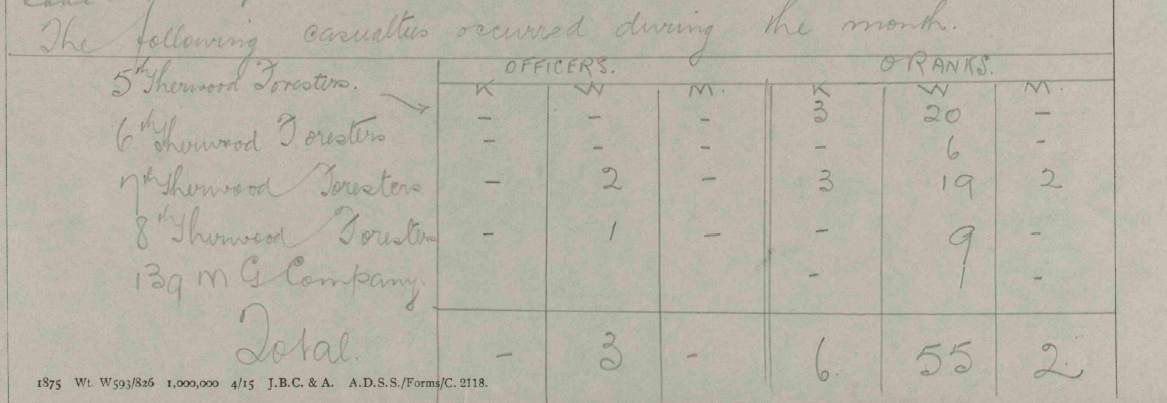 The following casualties occurred during the month.
OFFICERS. O RANKS.
K W M. K W M.
5th Sherwood Foresters. - - - 3 20 -
6th Sherwood Foresters - - - - 6 -
7th Sherwood Foresters - 2 - 3 19 2
8th Sherwood Foresters - 1 - - 9 -
139 M G Company. - 1 -
Total. - 3 - 6. 55 2.
1875 Wt. W593/826 1,000,000 4/15 J.B.C. & A. A.D.S.S./Forms/C. 2118.